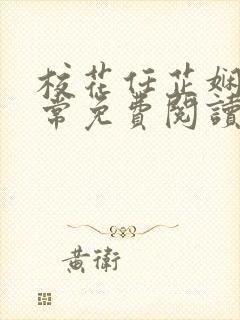 校花任芷娴
常免費閱讀
黃衛